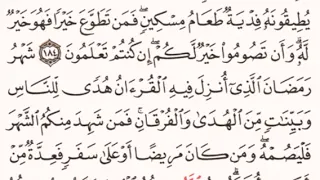 يُطِيقُونَهُۥ فِدْيَةٌ طَعَامُ مِسْكِينٍ ۖ فَمَن تَطَوَّعَ خَيْرًا فَهُوَ خَيْرٌ
لَّهُۥ ۚ وَأَن تَصُومُوا۟ خَيْرٌ لَّكُمْ ۖ إِن كُنتُمْ تَعْلَمُونَ ١٨٤ شَهْرُ
رَمَضَانَ ٱلَّذِىٓ أُنزِلَ فِيهِ ٱلْقُرْءَانُ هُدًى لِّلنَّاسِ
وَبَيِّنَٰتٍ مِّنَ ٱلْهُدَىٰ وَٱلْفُرْقَانِ ۚ فَمَن شَهِدَ مِنكُمُ ٱلشَّهْرَ
فَلْيَصُمْهُ ۖ وَمَن كَانَ مَرِيضًا أَوْ عَلَىٰ سَفَرٍ فَعِدَّةٌ مِّنْ